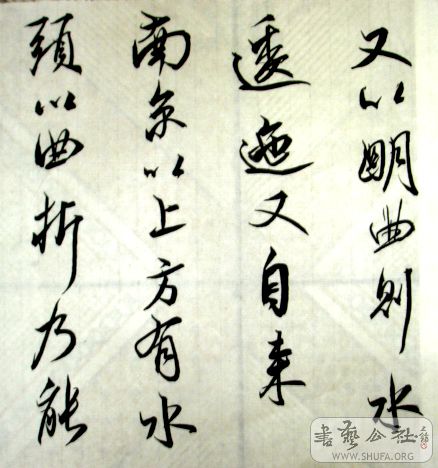 又以明曲則水
逶迤又自来
南京以上方有水
頭以曲折乃能
書藝公社
WWW.SHUFA.ORG